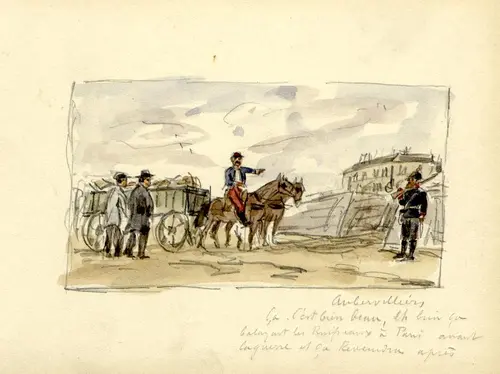 Aubervilliers
Ça. C'est bien beau, eh bien ça
balayait les Ruisseaux à Paris avant
la guerre et ça Reviendra après